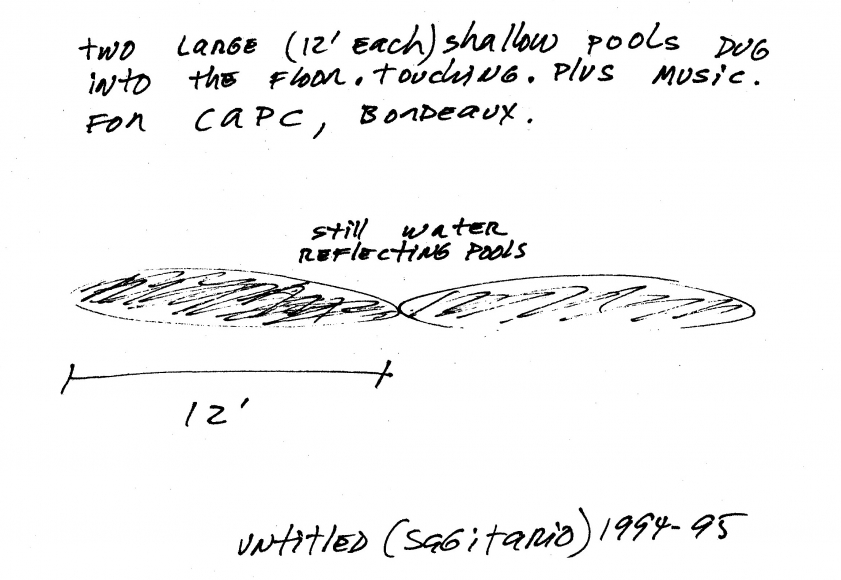 two Large (12' each) shallow pools DUG
into the Floor. touching. Plus Music.
For CAPC, Bordeaux.
still water
REFlecting Pools
12'
untitled (Sagitario) 1994-95